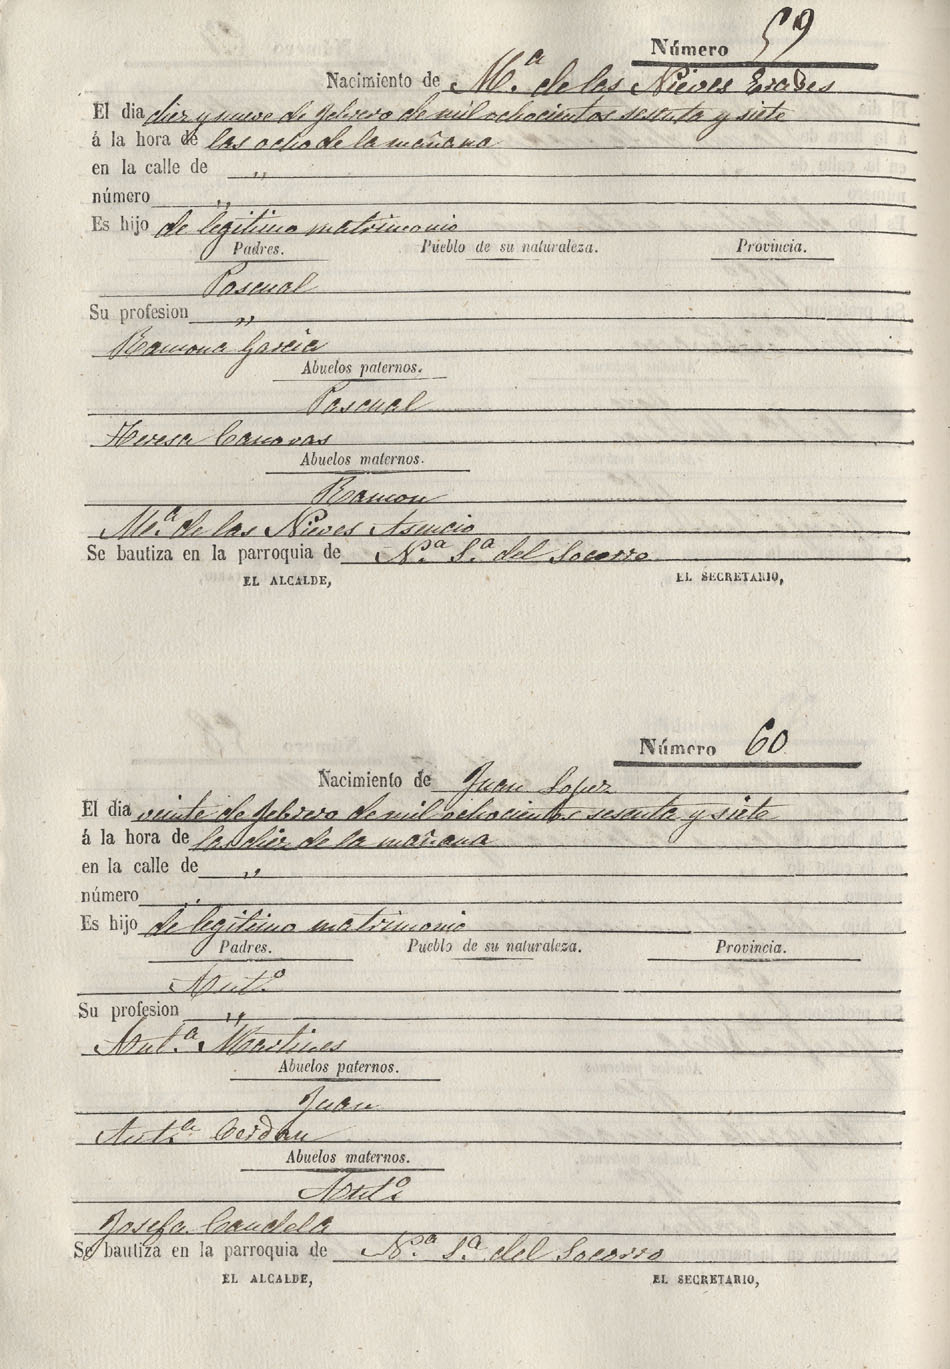 Número 59
Nacimiento de M.ª de las Nieves Erades
El dia diez y nueve de febrero de mil ochocientos sesenta y siete
á la hora de las ocho de la mañana
en la calle de "
número "
Es hijo de legitimo matrimonio
Padres. Pueblo de su naturaleza. Provincia.
Pascual
Su profesion "
Ramona Garcia
Abuelos paternos.
Pascual
Teresa Canovas
Abuelos maternos.
Ramon
M.ª de las Nieves Asencio
Se bautiza en la parroquia de N.ª S.ª del Socorro
EL ALCALDE, EL SECRETARIO,
Número 60
Nacimiento de Juan Lopez
El dia veinte de febrero de mil ochocientos sesenta y siete
á la hora de las diez de la mañana
en la calle de "
número "
Es hijo de legitimo matrimonio
Padres. Pueblo de su naturaleza. Provincia.
Ant.º
Su profesion "
Ant.ª Martines
Abuelos paternos.
Juan
Ant.ª Cerdan
Abuelos maternos.
Ant.º
Josefa Candela
Se bautiza en la parroquia de N.ª S.ª del Socorro
EL ALCALDE, EL SECRETARIO,